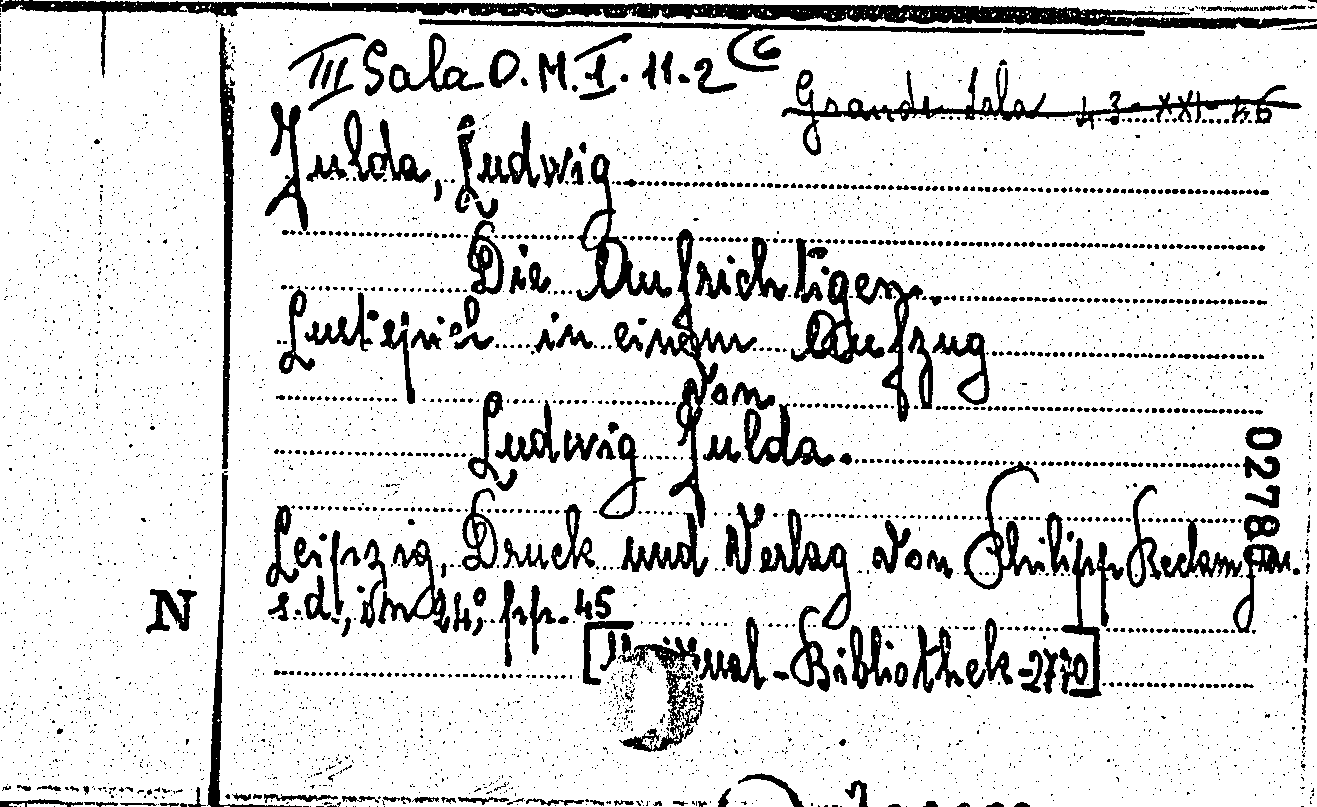 III Sala O.M.I. 11.2 (6
Grande Sala 43-XXI-46
Fulda, Ludwig.
Die Aufrichtigen.
Lustspiel in einem Aufzug
von
Ludwig Fulda.
Leipzig, Druck und Verlag von Philipp Reclam Jun.
s.d., in 24º, pp. 45
-Bibliothek-2770]
N